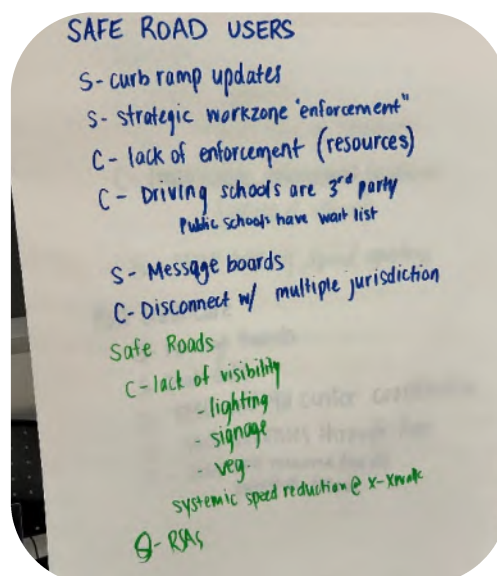 SAFE ROAD USERS
S- curb ramp updates
S- strategic workzone "enforcement"
C- lack of enforcement (resources)
C- Driving schools are 3rd party
Public schools have wait list
S- Message boards
C- Disconnect w/ multiple jurisdiction
Safe Roads
C- lack of visibility
- lighting
- signage
- veg.
systemic speed reduction @
- RSAs